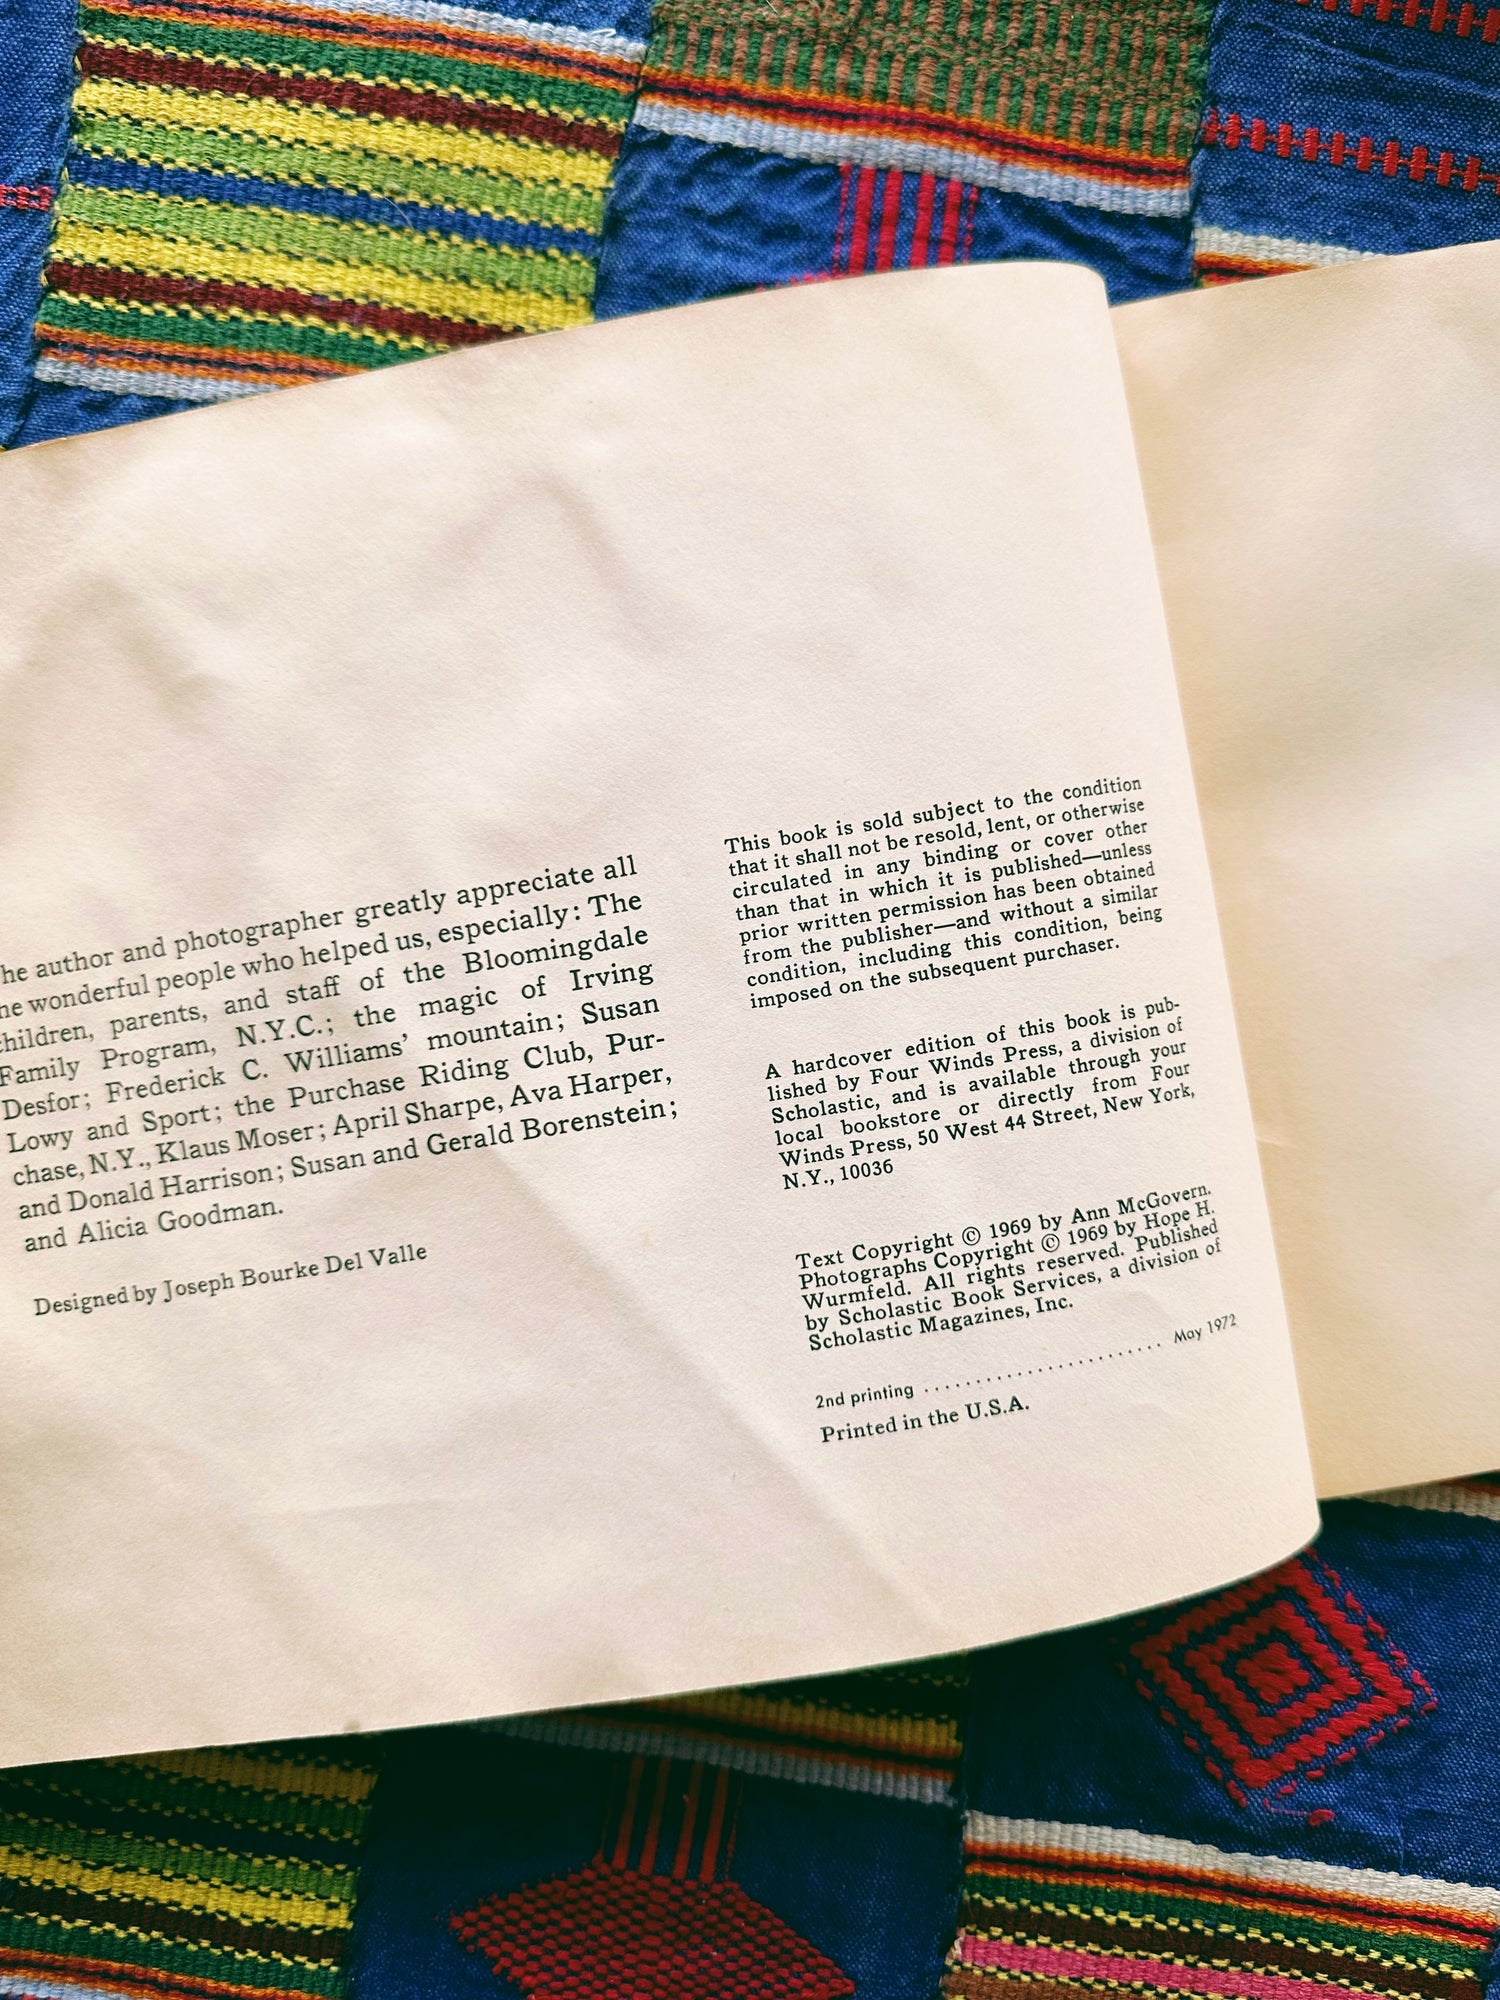 he author and photographer greatly appreciate all
he wonderful people who helped us, especially: The
children, parents, and staff of the Bloomingdale
Family Program, N.Y.C.; the magic of Irving
Desfor; Frederick C. Williams' mountain; Susan
Lowy and Sport; the Purchase Riding Club, Pur-
chase, N.Y., Klaus Moser; April Sharpe, Ava Harper,
and Donald Harrison; Susan and Gerald Borenstein;
and Alicia Goodman.
Designed by Joseph Bourke Del Valle
This book is sold subject to the condition
that it shall not be resold, lent, or otherwise
circulated in any binding or cover other
than that in which it is published—unless
prior written permission has been obtained
from the publisher—and without a similar
condition, including this condition, being
imposed on the subsequent purchaser.
A hardcover edition of this book is pub-
lished by Four Winds Press, a division of
Scholastic, and is available through your
local bookstore or directly from Four
Winds Press, 50 West 44 Street, New York,
N.Y., 10036
Text Copyright © 1969 by Ann McGovern.
Photographs Copyright © 1969 by Hope H.
Wurmfeld. All rights reserved. Published
by Scholastic Book Services, a division of
Scholastic Magazines, Inc.
2nd printing ........................ May 1972
Printed in the U.S.A.